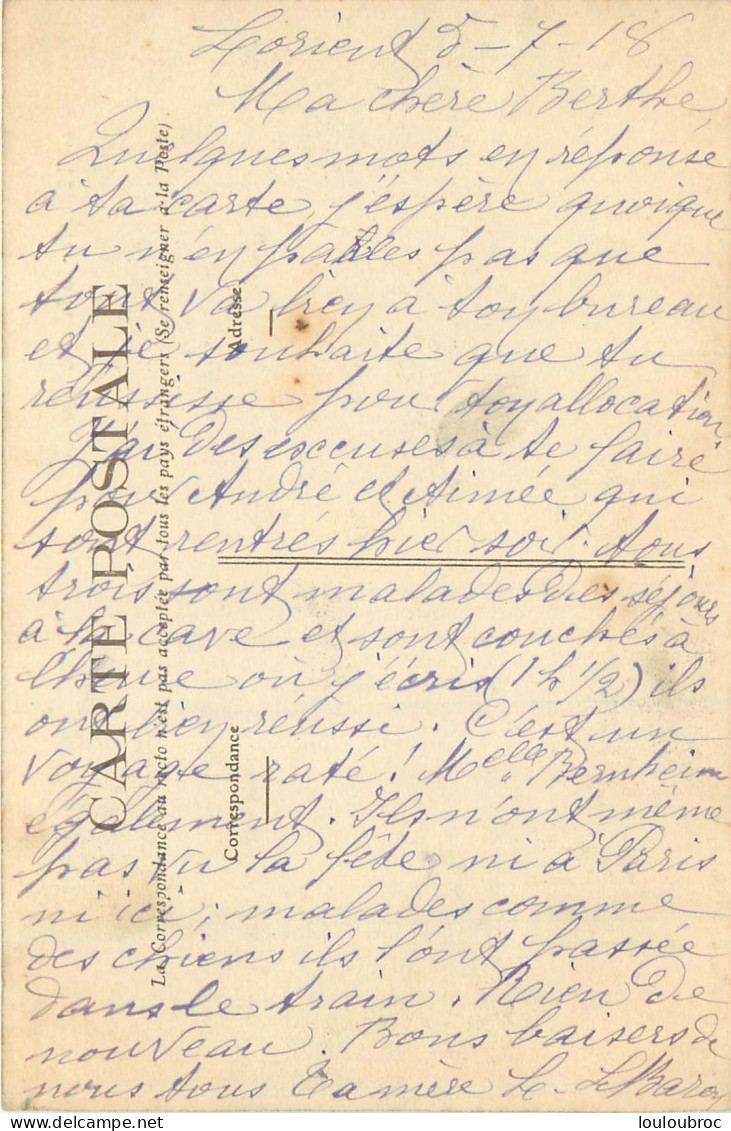 Lorient 5-7-18
Ma chère Berthe,
Quelques mots en réponse
à ta carte, j'espère quoique
tu n'en parles pas que
tout va bien à ton bureau
et je souhaite que tu
réussisse pour ton allocation.
J'ai des escuses à te faire
pour André et Aimée qui
sont rentrés hier soir. tous
trois sont malades des séjours
à la cave et sont couchés à
l'heure où j'écris (1 h 1/2) ils
ont bien réussi. C'est un
voyage raté! Melle Bernheim
également. Ils n'ont même
pas vu la fête ni à Paris
ni ici; malades comme
des chiens ils l'ont passée
dans le train. Rien de
nouveau. Bons baisers de
nous tous Ta mère L. Le Baron
CARTE POSTALE
La Correspondance au recto n'est pas acceptée par tous les pays étrangers (Se renseigner à la Poste)
Correspondance
Adresse
© louloubroc